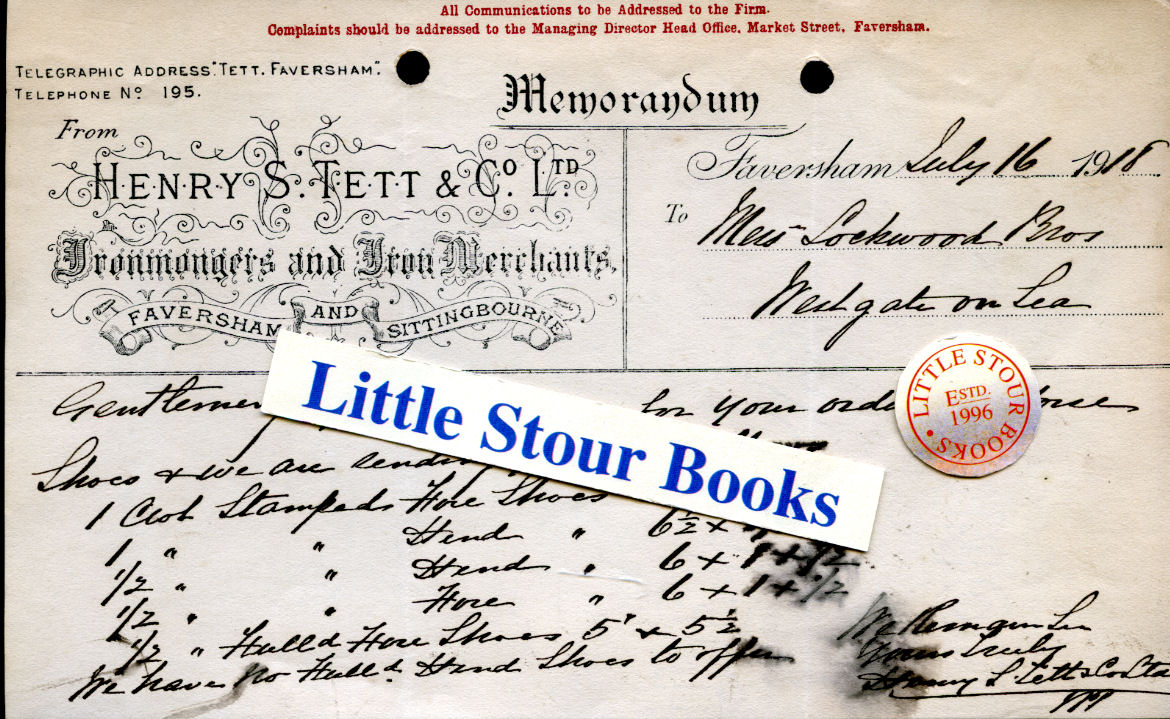 All Communications to be Addressed to the Firm.
Complaints should be addressed to the Managing Director Head Office, Market Street, Faversham.
TELEGRAPHIC ADDRESS "TETT. FAVERSHAM".
TELEPHONE No 195.
Memorandum
From
HENRY S. TETT & Co. LTD
Ironmongers and Iron Merchants,
FAVERSHAM AND SITTINGBOURNE
Faversham July 16 1918
To Mess Lockwood Bros
Westgate on Sea
Gentlemen for your
Shoes & we are
1 Cwt Stamped Fore Shoes
1 " " Hind " 6½ x
1/2 " " Hind " 6 x 1 x 1/2
1/2 " " Fore " 6 x 1 x 1/2
1/2 " Hulld Fore Shoes 5 x 5½
We have no Hulld Hind Shoes to offer
We Remain
Yours truly
Henry S. Tett & Co Ltd
Little Stour Books
LITTLE STOUR BOOKS
ESTD.
1996